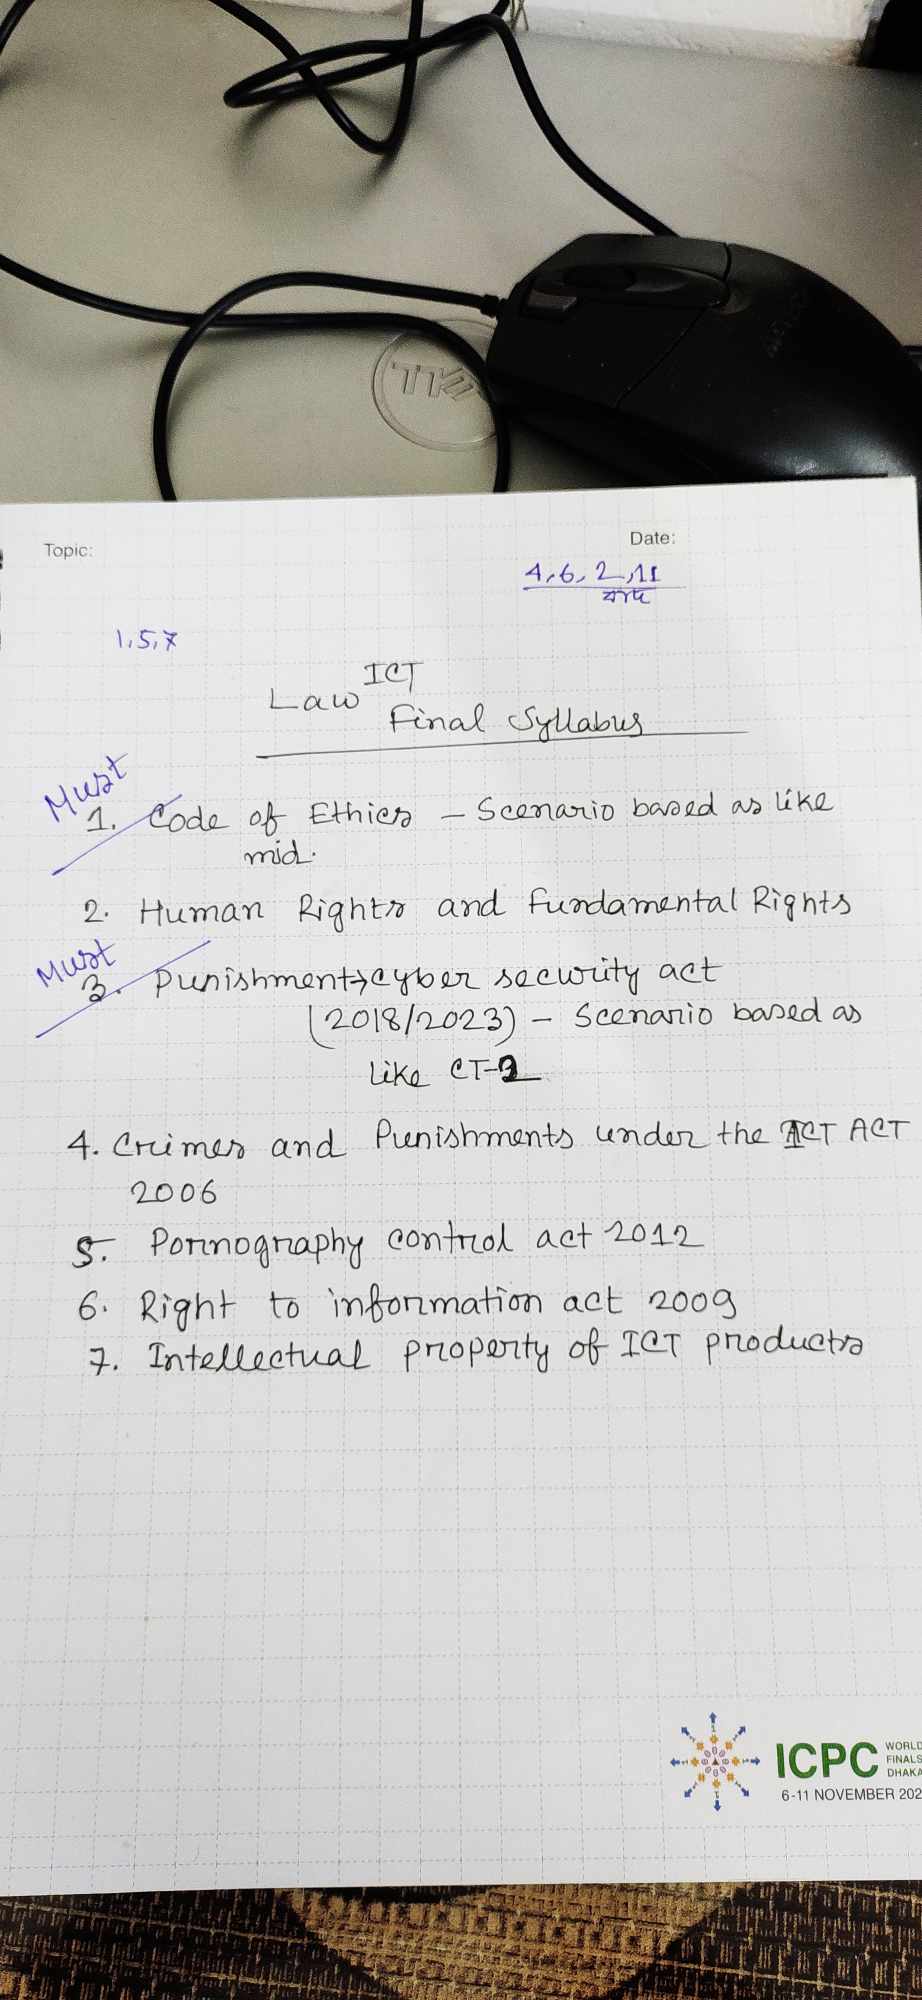 Topic:
Date:
4, 6, 2, 11
বাদ
1, 5, 7
Law ICT
Final Syllabus
Must
1. Code of Ethics – Scenario based as like
mid.
2. Human Rights and Fundamental Rights
Must
3. Punishment→cyber security act
(2018/2023) – Scenario based as
like CT-2
4. Crimes and Punishments under the ICT ACT
2006
5. Pornography control act 2012
6. Right to information act 2009
7. Intellectual property of ICT products
ICPC
WORLD
FINALS
DHAKA
6-11 NOVEMBER 202